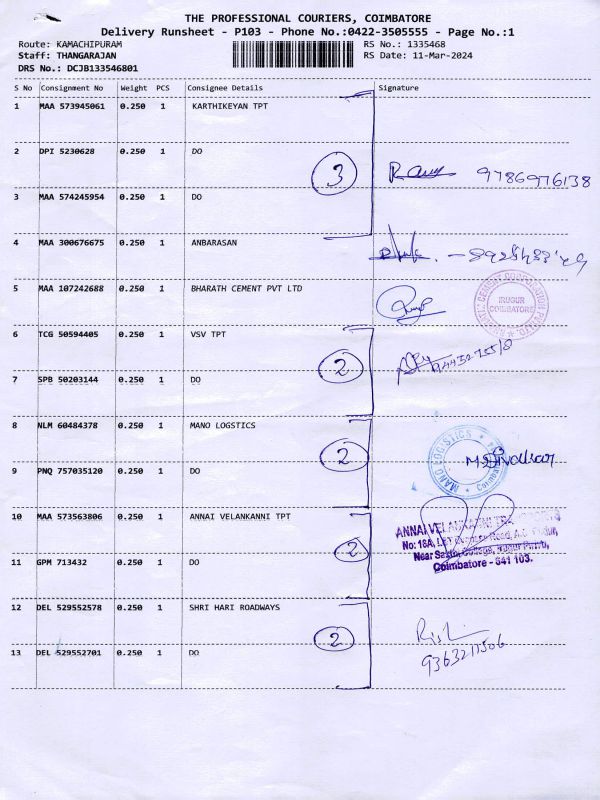 THE PROFESSIONAL COURIERS, COIMBATORE
Delivery Runsheet - P103 - Phone No.:0422-3505555 - Page No.:1
Route: KAMACHIPURAM
RS No.: 1335468
Staff: THANGARAJAN
RS Date: 11-Mar-2024
DRS No.: DCJB133546801
S No Consignment No Weight PCS Consignee Details Signature
1 MAA 573945061 0.250 1 KARTHIKEYAN TPT
2 DPI 5230628 0.250 1 DO
3 9786976138
3 MAA 574245954 0.250 1 DO
4 MAA 300676675 0.250 1 ANBARASAN
5 MAA 107242688 0.250 1 BHARATH CEMENT PVT LTD
IRUGUR
COIMBATORE
6 TCG 50594405 0.250 1 VSV TPT
2
7 SPB 50203144 0.250 1 DO
8 NLM 60484378 0.250 1 MANO LOGSTICS
2 MANO LOGISTICS Coimbatore
9 PNQ 757035120 0.250 1 DO
10 MAA 573563806 0.250 1 ANNAI VELANKANNI TPT
ANNAI VELANKANNI
No: 18A,
2 Near
Coimbatore - 641 103.
11 GPM 713432 0.250 1 DO
12 DEL 529552578 0.250 1 SHRI HARI ROADWAYS
2
13 DEL 529552701 0.250 1 DO
9363211506